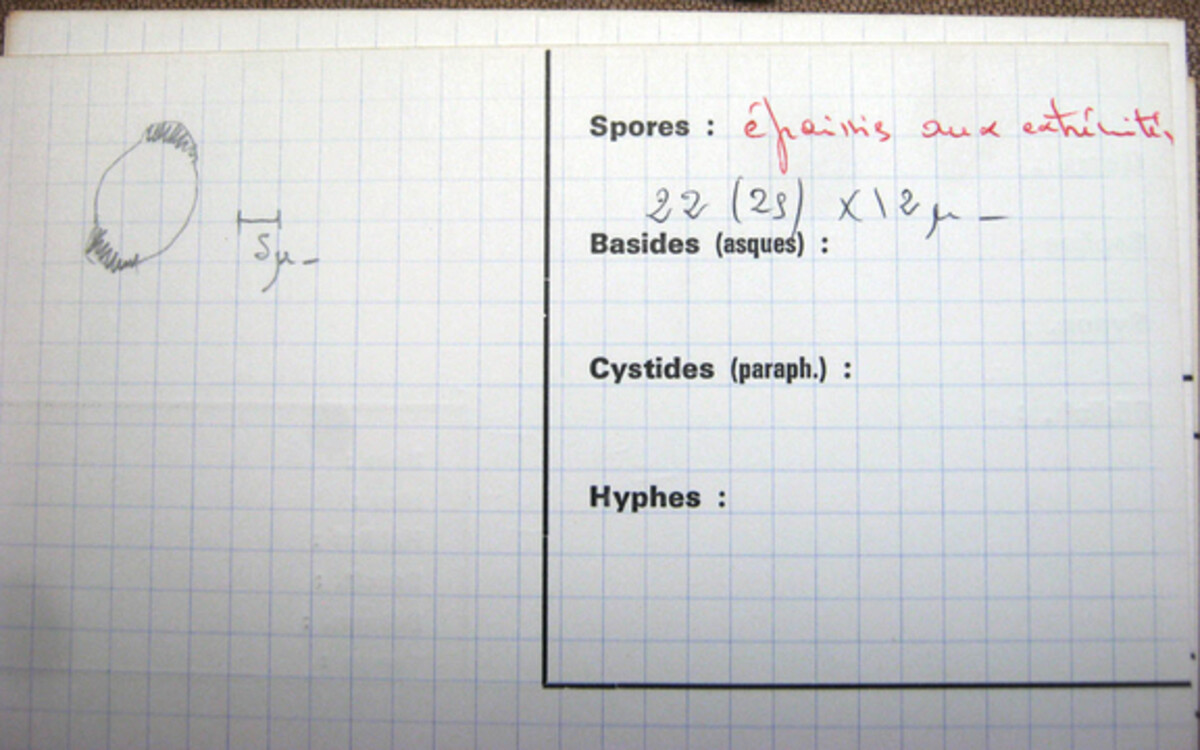 5 µ_
Spores : épaissis aux extrémités
22 (25) x 12 µ _
Basides (asques) :
Cystides (paraph.) :
Hyphes :